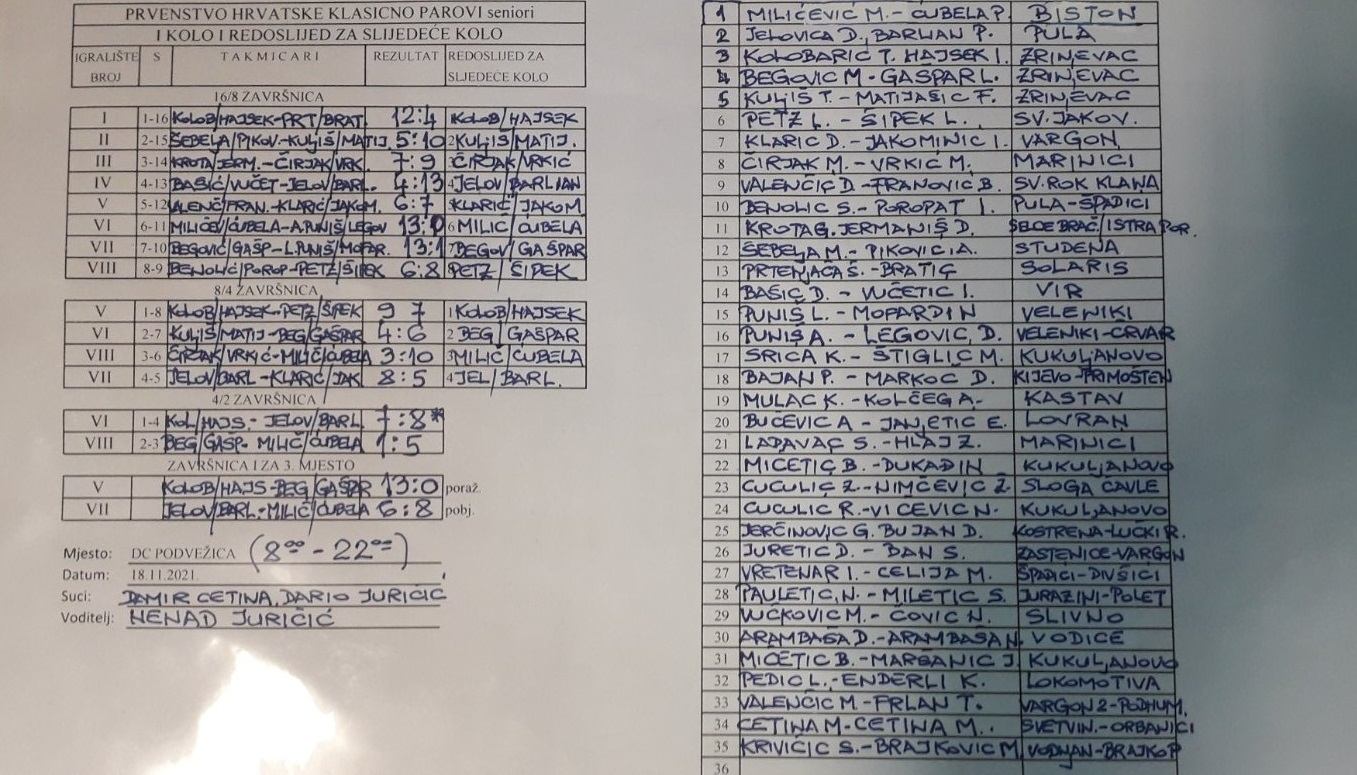 PRVENSTVO HRVATSKE KLASICNO PAROVI seniori
I KOLO I REDOSLIJED ZA SLIJEDEĆE KOLO
IGRALIŠTE BROJ S TAKMICARI REZULTAT REDOSLIJED ZA SLJEDEĆE KOLO
16/8 ZAVRŠNICA
I 1-16 KOLOB/HAJSEK-PRT/BRAT 12:4 1 KOLOB/HAJSEK
II 2-15 ŠEBELA/PIKOV.-KULJIŠ/MATIJ 5:10 2 KULJIŠ/MATIJ.
III 3-14 KROTA/JERM.-ČIRJAK/VRK. 7:9 3 ČIRJAK/VRKIĆ
IV 4-13 BAŠIĆ/VUČET-JELOV/BARL. 4:13 4 JELOV/BARLIAN
V 5-12 VALENČ/FRAN.-KLARIĆ/JAKOM. 6:7 KLARIĆ/JAKOM
VI 6-11 MILIČEV/ĆUBELA-A.PUNIŠ/LEGOV 13:0 6 MILIĆ/ĆUBELA
VII 7-10 BEGOVIĆ/GAŠP-L.PUNIŠ/MOPAR. 13:1 7 BEGOV/GAŠPAR
VIII 8-9 BENOLIĆ/POROP-PETZ/ŠIPEK 6:8 PETZ/ŠIPEK
8/4 ZAVRŠNICA
V 1-8 KOLOB/HAJSEK-PETZ/ŠIPEK 9 7 1 KOLOB/HAJSEK
VI 2-7 KULJIŠ/MATIJ-BEG/GAŠPAR 4:6 2 BEG/GAŠPAR
VIII 3-6 ČIRJAK/VRKIĆ-MILIĆ/ĆUBELA 3:10 3 MILIĆ/ĆUBELA
VII 4-5 JELOV/BARL-KLARIĆ/JAK 8:5 4 JEL/BARL.
4/2 ZAVRŠNICA
VI 1-4 KOL/HAJS.-JELOV/BARL 7:8*
VIII 2-3 BEG/GAŠP-MILIĆ/ĆUBELA 1:5
ZAVRŠNICA I ZA 3. MJESTO
V KOLOB/HAJS-BEG/GAŠPAR 13:0 poraž.
VII JELOV/BARL-MILIĆ/ĆUBELA 6:8 pobj.
Mjesto: DC PODVEŽICA (8⁰⁰ - 22⁰⁰)
Datum: 18.11.2021.
Suci: DAMIR CETINA, DARIO JURIČIĆ
Voditelj: NENAD JURIČIĆ
1 MILIĆEVIĆ M. - ĆUBELA P. BISTON
2 JELOVICA D., BARLIAN P. PULA
3 KOLOBARIĆ T. HAJSEK I. ZRINJEVAC
4 BEGOVIĆ M - GAŠPAR L. ZRINJEVAC
5 KULJIŠ T. - MATIJAŠIĆ F. ZRINJEVAC
6 PETZ L. - ŠIPEK L. SV. JAKOV.
7 KLARIĆ D. - JAKOMINIĆ I. VARGON
8 ČIRJAK M. - VRKIĆ M. MARINIĆI
9 VALENČIĆ D - FRANOVIĆ B. SV. ROK KLANA
10 BENOLIĆ S. - POROPAT I. PULA-ŠPADIĆI
11 KROTA G. JERMANIŠ D. SELCE BRAČ/ISTRA POR.
12 ŠEBELJA M. - PIKOVIC A. STUDENA
13 PRTENJAČA Š. - BRATIĆ SOLARIS
14 BAŠIĆ D. - VUČETIĆ I. VIR
15 PUNIŠ L. - MOPARDIN VELENIKI
16 PUNIŠ A. - LEGOVIĆ, D. VELENIKI-CRVAR
17 SRICA K. - ŠTIGLIĆ M. KUKULJANOVO
18 BAJAN P. - MARKOČ D. KIJEVO-PRIMOŠTEN
19 MULAC K. - KOLČEG A. KASTAV
20 BUČEVIĆ A - JANJETIĆ E. LOVRAN
21 LADAVAC S. - HLAJ Z. MARINIĆI
22 MIČETIĆ B. - DUKADIN KUKULJANOVO
23 CUCULIĆ Z. - NIMČEVIĆ Ž. SLOGA ČAVLE
24 CUCULIĆ R. - VIČEVIĆ N. KUKULJANOVO
25 JERČINOVIĆ G. BUJAN D. KOSTRENA-LUČKI R.
26 JURETIĆ D. - BAN S. ZASTENICE-VARGON
27 VRETENAR I. - CELIJA M. ŠPADIĆI-DIVŠIĆI
28 PAULETIĆ, N. - MILETIĆ S. JURAZINI-POLET
29 VUČKOVIĆ M. - ČOVIĆ N. SLIVNO
30 ARAMBAŠA D. - ARAMBAŠA N. VODICE
31 MIČETIĆ B. - MARŠANIĆ J. KUKULJANOVO
32 PEDIĆ L. - ENDERLI K. LOKOMOTIVA
33 VALENČIĆ M. - FRLAN T. VARGON 2-PODHUM.
34 CETINA M - CETINA M. SVETVIN.-ORBANIĆI
35 KRIVIČIĆ S. - BRAJKOVIĆ M VODNJAN-BRAJKOP
36